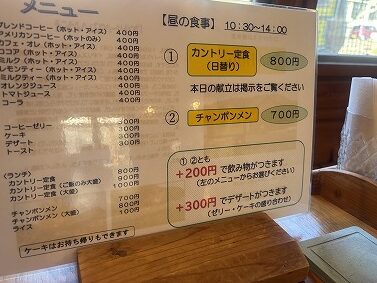 メニュー
ブレンドコーヒー（ホット・アイス） 400円
アメリカンコーヒー（ホットのみ） 400円
カフェ・オレ（ホット・アイス） 400円
ココア（ホット・アイス） 400円
ミルク（ホット・アイス） 400円
レモンティー（ホット・アイス） 400円
ミルクティー（ホット・アイス） 400円
オレンジジュース 400円
トマトジュース 400円
コーラ 400円
コーヒーゼリー
ケーキ 300円
デザート 300円
トースト
（ランチ）
カントリー定食 800円
カントリー定食（ご飯のみ大盛）
カントリー定食（大盛） 1000円
チャンポンメン 700円
チャンポンメン（大盛） 800円
ライス
ケーキはお持ち帰りもできます
【昼の食事】 10：30～14：00
① カントリー定食（日替り） 800円
本日の献立は掲示をご覧ください
② チャンポンメン 700円
① ②とも
+200円で飲み物がつきます
（左のメニューからお選びください）
+300円でデザートがつきます
（ゼリー・ケーキの盛り合わせ）